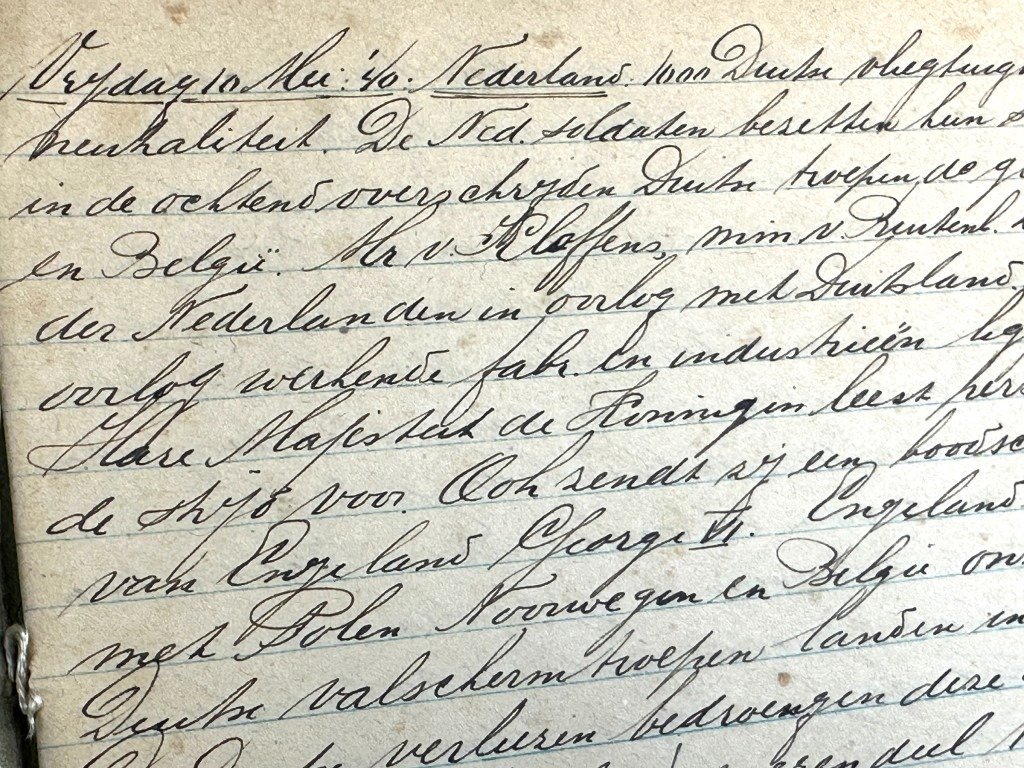 Vrijdag 10 Mei '40. Nederland. 1000 Duitse vliegtuig
neutraliteit. De Ned. soldaten bezetten hun
in de ochtend overschrijden Duitse troepen de
en België. Mr v. Kleffens, min v. Buitenl.
der Nederlanden in oorlog met Duitsland.
oorlog werkende fabr. en industrieën
Hare Majesteit de Koningin leest
de strijd voor. Ook zendt zij een boodsc
van Engeland George VI. Engeland
met Polen Noorwegen en België
Duitse valschermtroepen landen in
verliezen bedroegen deze
deel